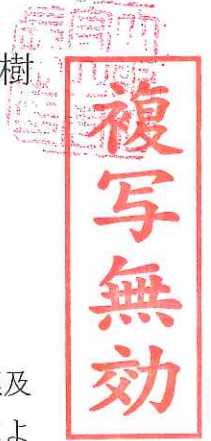 樹
複写無効
及
よ